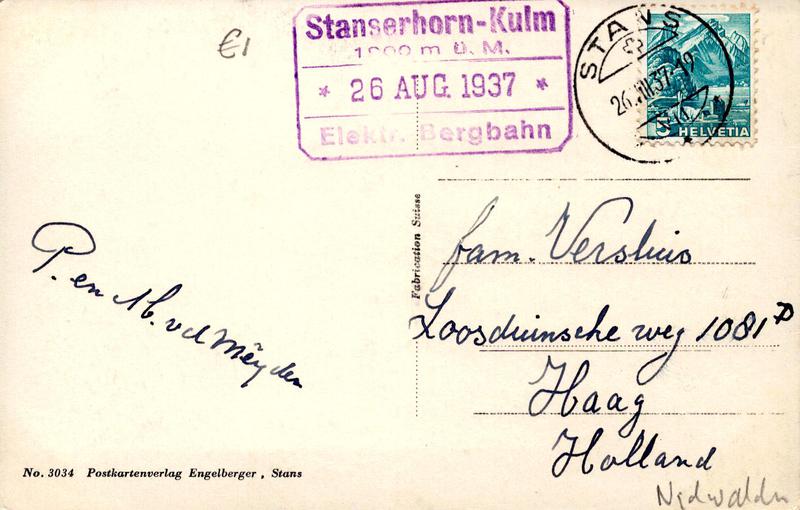 €1
Stanserhorn-Kulm
1900 m ü. M.
* 26 AUG. 1937 *
Elektr. Bergbahn
STANS
26.VIII.37-19
5 HELVETIA
P. en M. v.d. Meyden
Fabrication Suisse
fam. Versluis
Loosduinsche weg 1081
Haag
Holland
No. 3034 Postkartenverlag Engelberger, Stans
Nidwalden